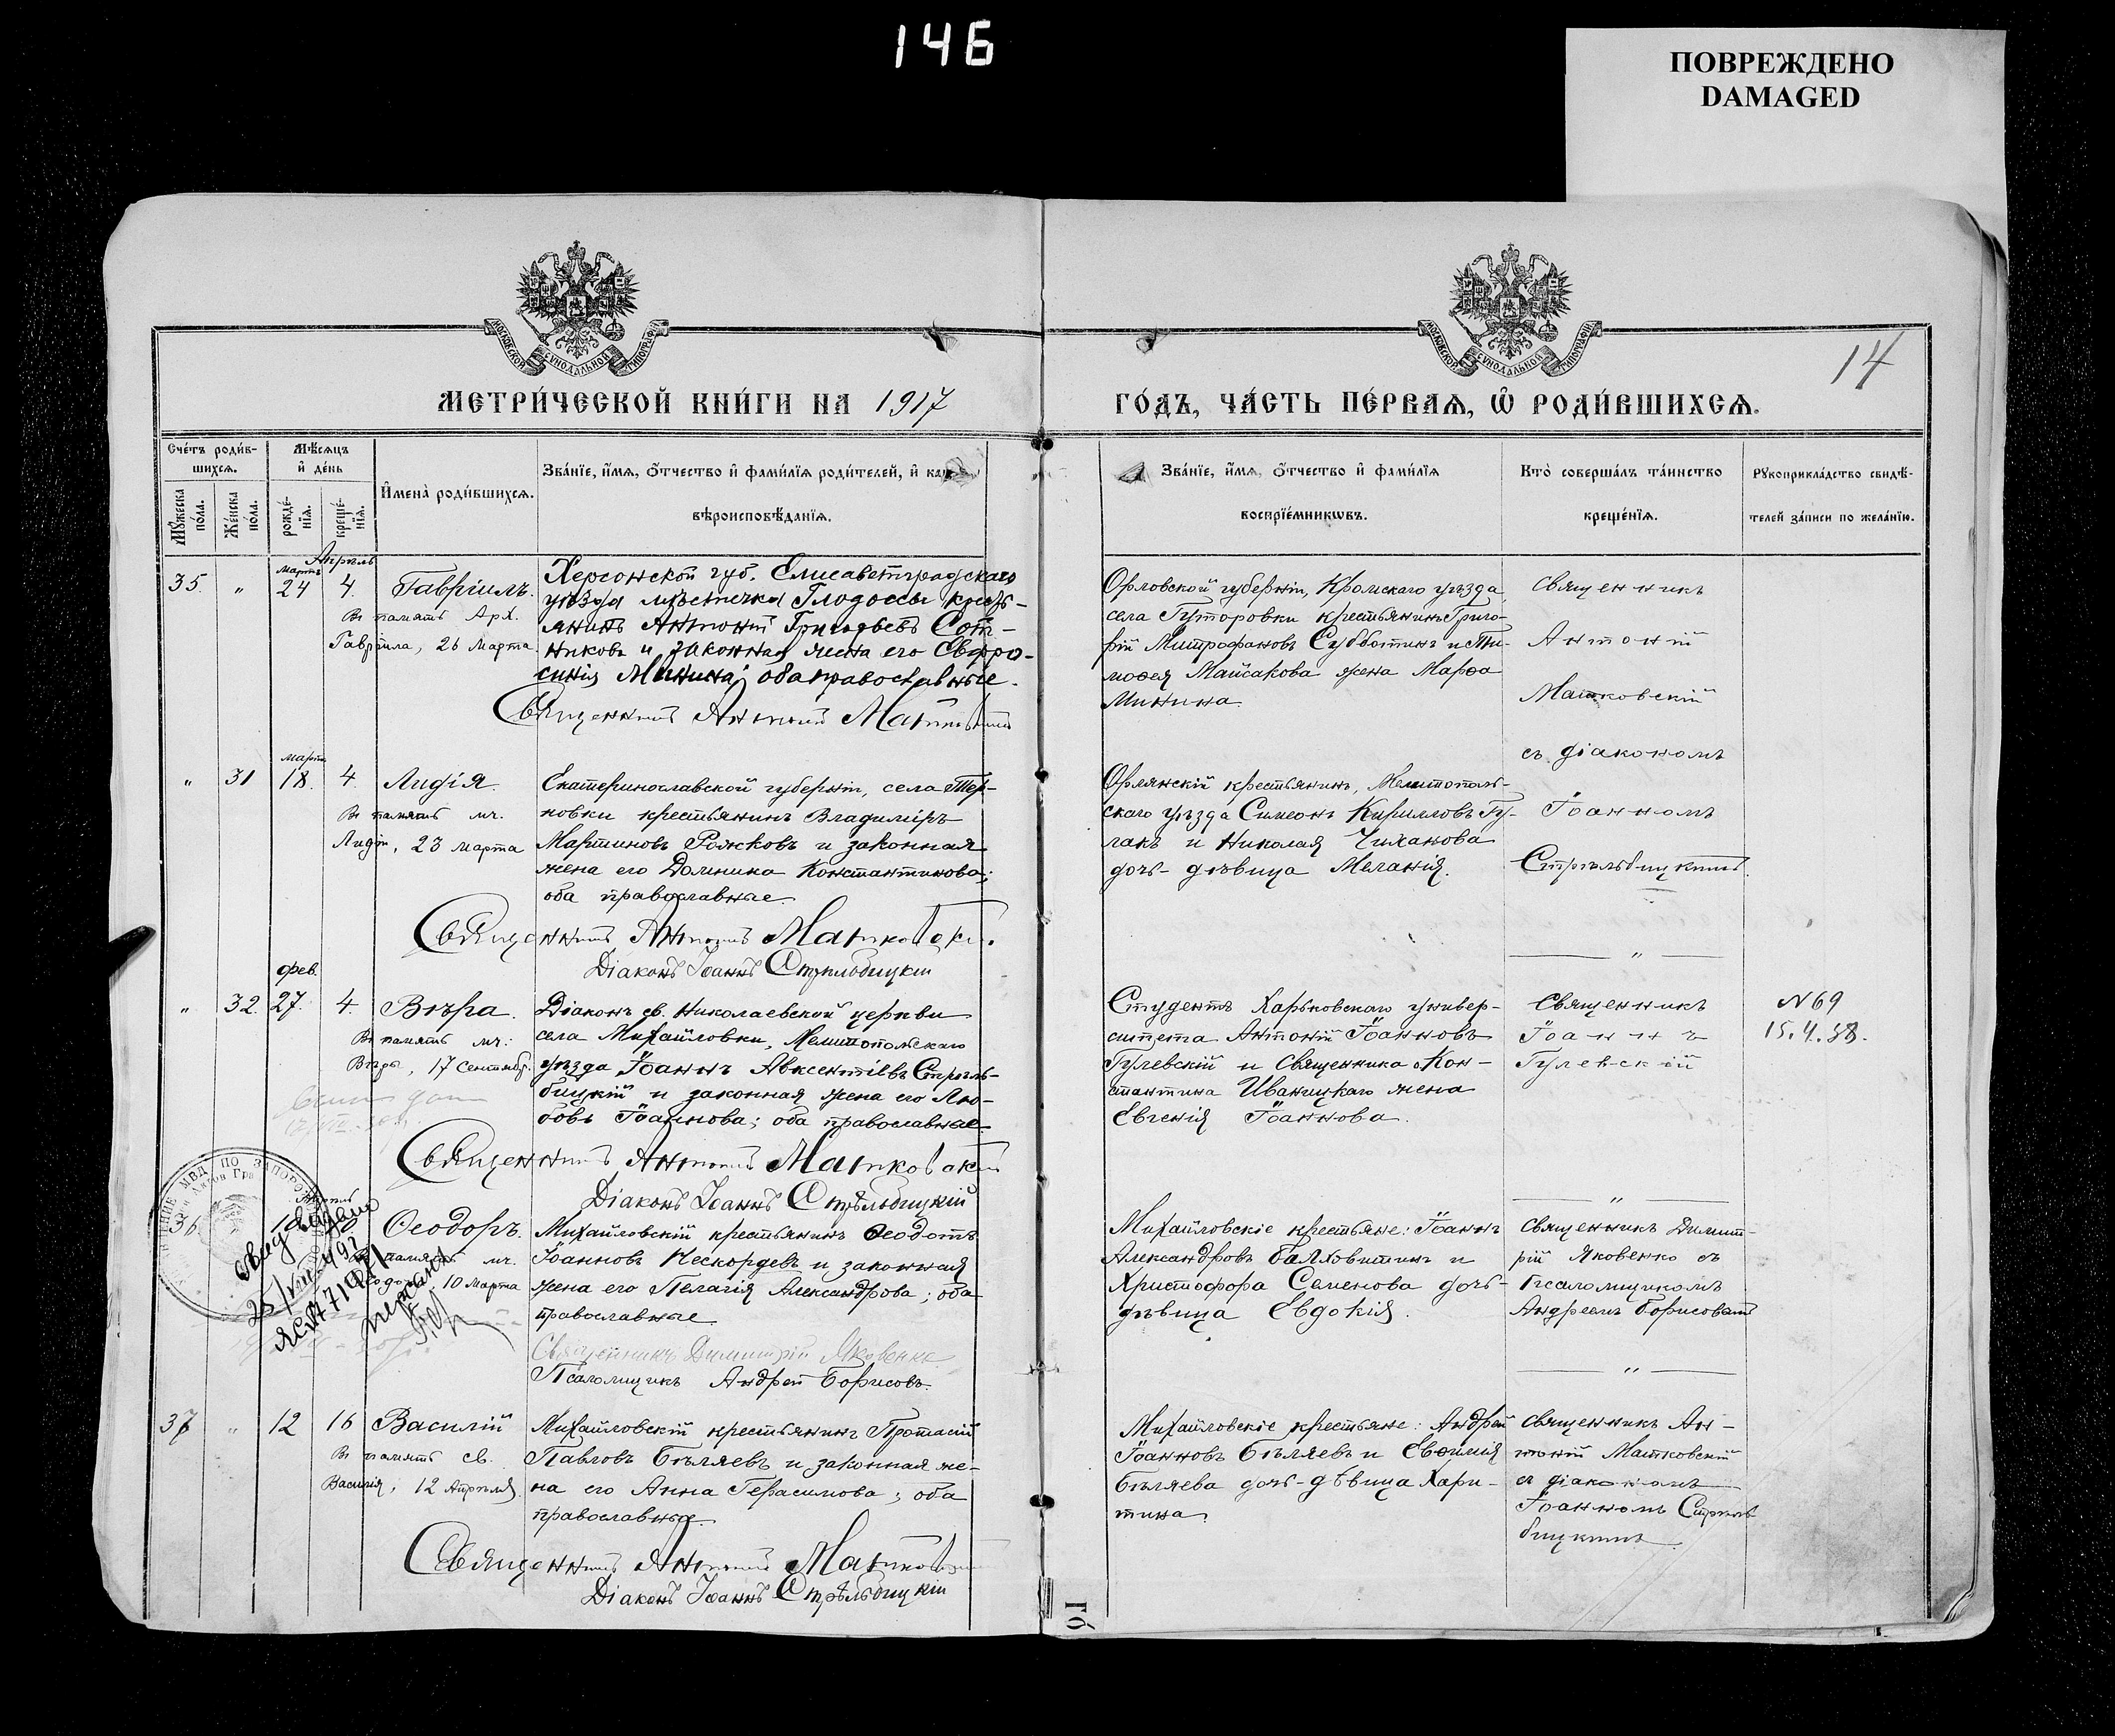 146
ПОВРЕЖДЕНО
DAMAGED
МОСКОВСКОЙ СУНОДАЛЬНОЙ ТИПОГРАФІИ
МОСКОВСКОЙ СУНОДАЛЬНОЙ ТИПОГРАФІИ
14
МЕТРИ́ЧЕСКОЙ КНИ́ГИ НА 1917
ГО́ДЪ, ЧА́СТЬ ПЕ́РВАЯ, Ѡ҆ РОДИ́ВШИХСЯ.
Сче́тъ роди́в-
шихся.
Мѣ́сяцъ
и҆ де́нь
Мꙋ́жеска
по́ла.
Же́нска
по́ла.
рожде́-
нїѧ.
креще́-
нїѧ.
И҆мена̀ роди́вшихся.
Зва́нїе, и҆́мѧ, ѻ҆́тчество и҆ фами́лїѧ роди́телей, и҆
вѣроисповѣ́данїѧ.
Зва́нїе, и҆́мѧ, ѻ҆́тчество и҆ фами́лїѧ
воспрїе́мникѡвъ.
Кто̀ соверша́лъ та́инство
креще́нїѧ.
Рꙋкоприкла́дство свидѣ́-
телей за́писи по жела́нїю.
Апрѣль
мартъ
35. " 24 4. Гавріилъ.
Въ память Арх.
Гавріила, 26 Марта.
Херсонской губ. Елисаветградскаго
уѣзда мѣстечка Глодоссы кресть-
янинъ Антоній Григорьевъ Сот-
никовъ и законная жена его Евфро-
синія Минина; оба православные.
Священникъ Антоній Матковскій
Орловской губерніи, Кромскаго уѣзда
села Гуторовки крестьянинъ Григо-
рій Митрофановъ Субботинъ и Ти-
мофея Майсакова жена Марѳа
Минина
Священникъ
Антоній
Матковскій
съ діакономъ
Іоанномъ
Стрѣльбицкимъ.
мартъ
" 31 18. 4. Лидія.
Въ память мч.
Лидіи, 23 марта
Екатеринославской губерніи, села Тер-
новки крестьянинъ Владиміръ
Мартиновъ Рожковъ и законная
жена его Домника Константинова;
оба православные.
Священникъ Антоній Матковскій.
Діаконъ Іоаннъ Стрѣльбицкій
Орлянскій крестьянинъ, Мелитополь-
скаго уѣзда Симеонъ Кирилловъ Гу-
лакъ и Николая Чиханова
дочь-дѣвица Меланія.
"
фев.
" 32. 27. 4. Вѣра.
Въ память мч:
Вѣры, 17 Сентябр.
Діаконъ св. Николаевской церкви
села Михайловки, Мелитопольскаго
уѣзда Іоаннъ Авксентіевъ Стрѣль-
бицкій и законная жена его Лю-
бовь Іоаннова; оба православные
Священникъ Антоній Матковскій
Діаконъ Іоаннъ Стрѣльбицкій
Студентъ Харьковскаго универ-
ситета Антоній Іоанновъ
Гулевскій и Священника Кон-
стантина Иваницкаго жена
Евгенія Іоаннова.
Священникъ
Іоаннъ
Гулевскій
N 69
15.4.38.
"
36 Ѳеодоръ.
память мч.
10 марта
МВД ПО
Михайловскій крестьянинъ Ѳеодотъ
Іоанновъ Нескордевъ и законная
жена его Пелагія Александрова; оба
православные
Священникъ Димитрій Яковенко
Псаломщикъ Андрей Борисовъ.
Михайловскіе крестьяне: Іоаннъ
Александровъ и
Христофора Семенова дочь-
дѣвица Евдокія.
Священникъ Димит-
рій Яковенко съ
Псаломщикомъ
Андреемъ Борисовымъ
"
37 " 12 16 Василій
Въ память св.
Василія, 12 Апрѣля.
Михайловскій крестьянинъ Протасій
Павловъ Бѣляевъ и законная же-
на его Анна Герасимова; оба
православные.
Священникъ Антоній Матковскій
Діаконъ Іоаннъ Стрѣльбицкій
Михайловскіе крестьяне: Андрей
Іоанновъ Бѣляевъ и Евѳимія
Бѣляева дочь-дѣвица Хари-
тина.
Священникъ Ан-
тоній Матковскій
съ діакономъ
Іоанномъ Стрѣль-
бицкимъ.
Го́